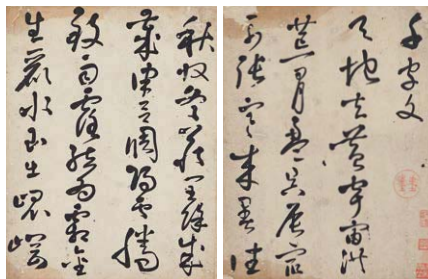 千字文
天地玄黃宇宙洪
荒日月盈昃辰宿
列張寒來暑往
秋收冬藏閏餘成
歲律呂調陽雲騰
致雨露結為霜金
生麗水玉出崑岡